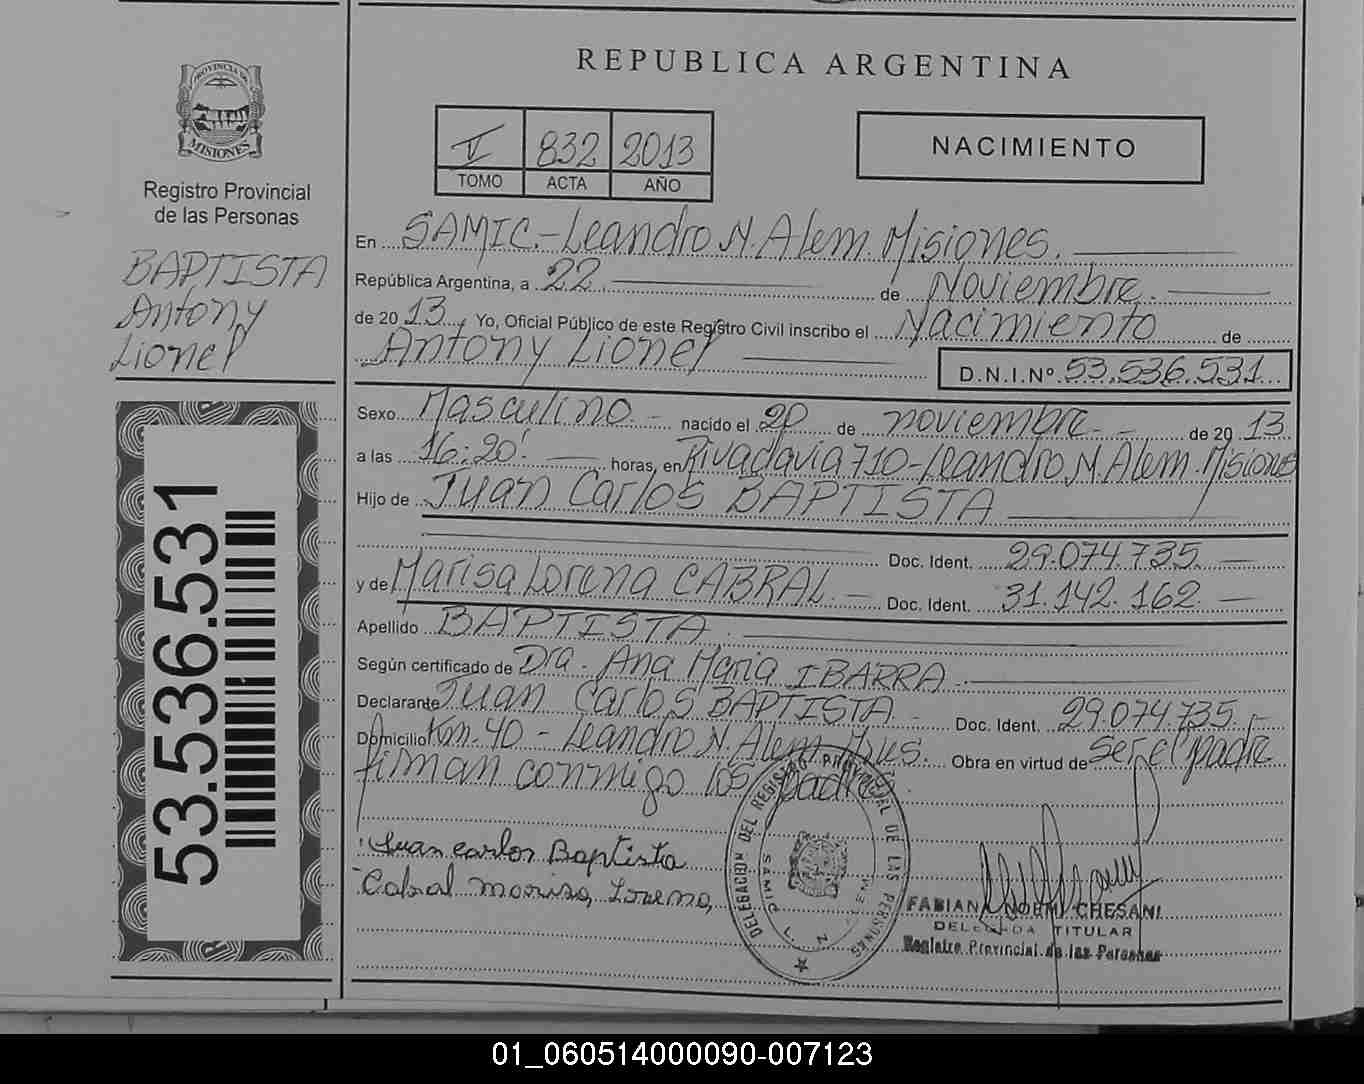 REPUBLICA ARGENTINA
PROVINCIA DE
MISIONES
Registro Provincial
de las Personas
BAPTISTA
Antony
Lionel
53.536.531
832 2013
TOMO ACTA AÑO
NACIMIENTO
En SAMIC.-Leandro N. Alem Misiones.
República Argentina, a 22 de Noviembre.
de 20 13., Yo, Oficial Público de este Registro Civil inscribo el Nacimiento de
Antony Lionel D.N.I.Nº 53.536.531
Sexo Masculino - nacido el 20 de noviembre - de 20 13
a las 16:20' horas, en Rivadavia 710-Leandro N. Alem. Misiones
Hijo de Juan Carlos BAPTISTA
Doc. Ident. 29.074.735. -
y de Marisa Lorena CABRAL. - Doc. Ident. 31.142.162. -
Apellido BAPTISTA.
Según certificado de Dra. Ana Maria IBARRA.
Declarante Juan Carlos BAPTISTA - Doc. Ident. 29.074.735.-
Domicilio Km. 40 - Leandro N. Alem Mnes. Obra en virtud de ser el padre
firman conmigo los padres
Juan carlos Baptista
Cabral marisa, Lorena,
DELEGACION DEL REGISTRO PROVINCIAL DE LAS PERSONAS
FABIANA NOEMI CHESANI
DELEGADA TITULAR
Registro Provincial de las Personas
01_060514000090-007123